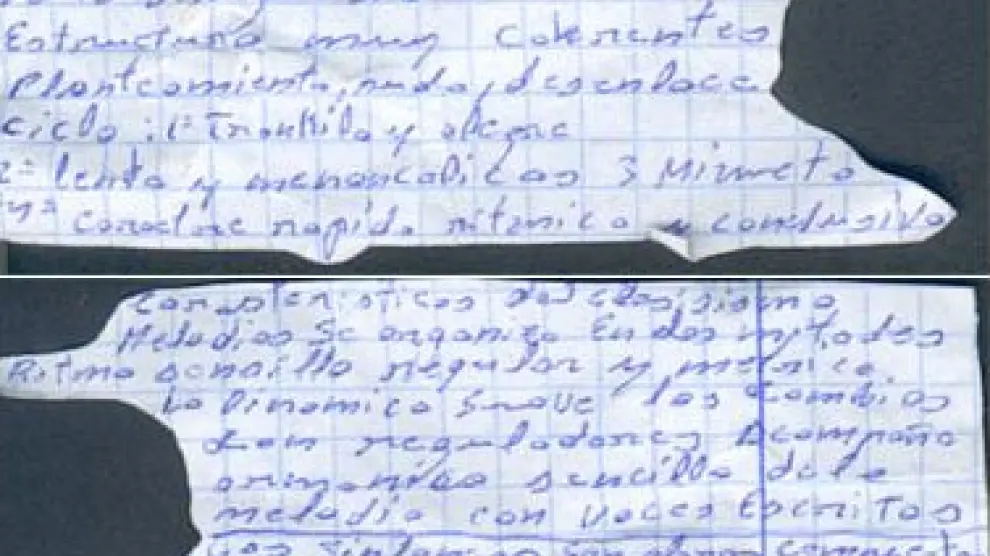 Estructura muy coherentes
Planteamiento, nudo, desenlace
ciclo: 1º Trankilo y alegre
2º lento y menancolicas 3 Minueto
4º Caractere rapido ritmico y conclusivo
Caracteristicas del clasisismo
Melodias Se organiza En dos mitades
Ritmo sensillo regular y metrico
La Dinamica Suave los Cambios
Con reguladores Acompaña
armonico sencillo de la
melodia con voces Escritas
Las Sinfonias Son obras